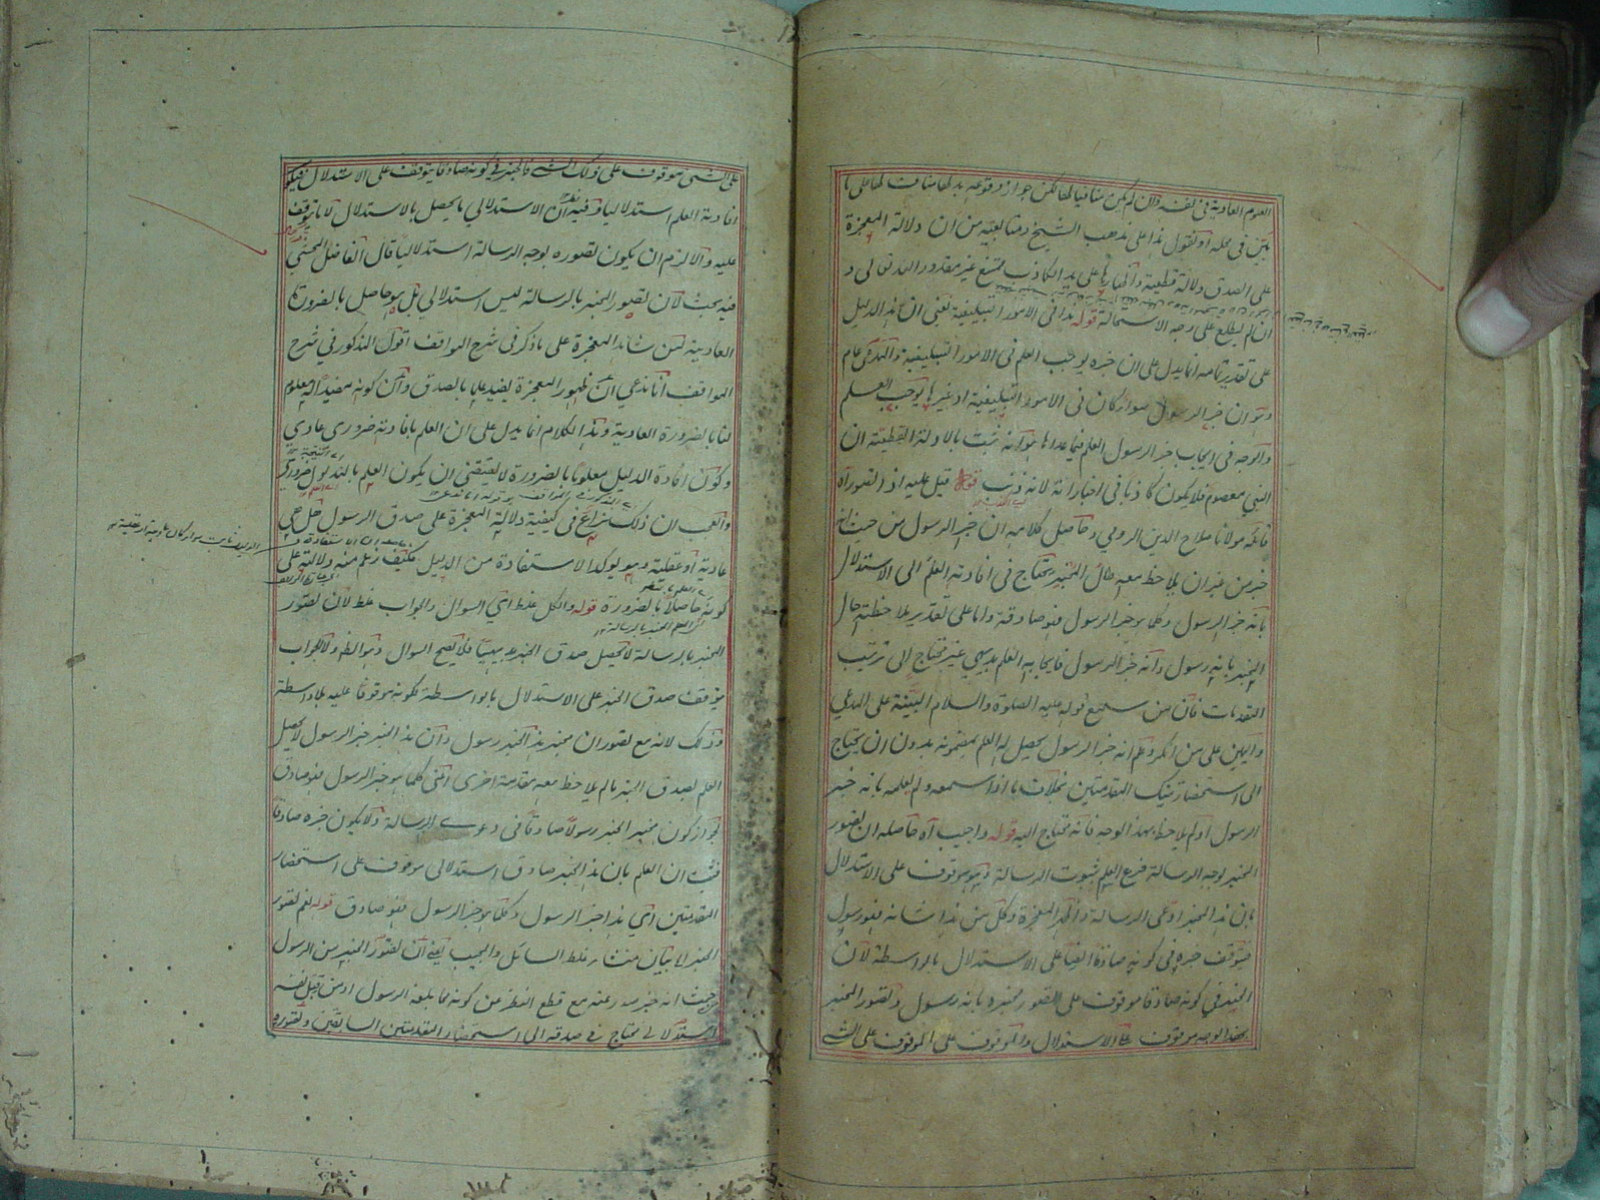 العلوم العادية في نفسه فلان لم يكن منافيا لها لكن جواز وقوعه بدلها مناف لها على ما
بين في محله او نقول هذا على مذهب الشيخ ومتابعيه من ان دلالة المعجزة
على الصدق دلالة قطعية واظهارها على يد الكاذب ممتنع غير مقدور الله تعالى و
ان لم يطلع على وجه الاستحالة قوله هذا في الامور التبليغية يعني ان هذا الدليل
على تقدير تمامه انما يدل على ان خبره يوجب العلم في الامور التبليغية والمدعى عام
وهو ان خبر الرسول سواء كان في الامور التبليغية او غيرها يوجب العلم
والوجه في ايجاب خبر الرسول العلم فيما عداها هو انه ثبت بالادلة القطعية ان
النبي معصوم فلا يكون كاذبا في اخباراته لانه ذنب قوله قيل عليه اذا تصور اه
قائله مولانا صلاح الدين الرومي وحاصل كلامه ان خبر الرسول من حيث انه
خبر من غير ان يلاحظ معه حال المخبر يحتاج في افادته العلم الى الاستدلال
بانه خبر الرسول وكلما هو خبر الرسول فهو صادق واما على تقدير ملاحظة حال
المخبر بانه رسول وانه خبر الرسول فايجابه العلم بديهي غير محتاج الى ترتيب
المقدمات فان من سمع قوله عليه الصلوة والسلام البينة على المدعي
واليمين على من انكر وعلم انه خبر الرسول يحصل له العلم بمضمونه بدون ان يحتاج
الى استحضار تينك المقدمتين بخلاف ما اذا سمعه ولم يعلمه بانه خبر
الرسول او لم يلاحظ بهذا الوجه فانه محتاج اليه قوله واجيب اه حاصله ان تصور
المخبر بوجه الرسالة فرع العلم بثبوت الرسالة وهو موقوف على الاستدلال
بان هذا المخبر ادعى الرسالة واظهر المعجزة وكل من هذا شانه فهو رسول
فتوقف خبره في كونه صادقا ايضا على الاستدلال بالواسطة لان
الخبر في كونه صادقا موقوف على تصور مخبره بانه رسول وتصور المخبر
بهذا الوجه موقوف على الاستدلال والموقوف على الموقوف على الشئ
على الشئ موقوف على ذلك الشئ فالخبر في كونه صادقا يتوقف على الاستدلال فيكون
افادته العلم استدلاليا وفيه ان الاستدلالي ما يحصل بالاستدلال لا ما يتوقف
عليه والا لزم ان يكون تصوره بوجه الرسالة استدلاليا قال الفاضل المحشي
فيه بحث لان تصور المخبر بالرسالة ليس استدلالي بل هو حاصل بالضرورة
العادية لمن شاهد المعجزة على ما ذكر في شرح المواقف اقول المذكور في شرح
المواقف انا ندعي ان ظهور المعجزة يفيد علما بالصدق وان كونه مفيدا له معلوم
لنا بالضرورة العادية وهذا الكلام انما يدل على ان العلم بافادته ضروري عادي
وكون افادة الدليل معلوما بالضرورة لا يقتضي ان يكون العلم بالمدلول ضروريا
والعجب ان ذلك نزاع في كيفية دلالة المعجزة على صدق الرسول هل هي
عادية او عقلية وهو يؤكد الاستفادة من الدليل فكيف زعم منه دلالته على
كونه حاصلا بالضرورة قوله والكل غلط اي السوال والجواب غلط لان تصور
المخبر بالرسالة لا يحصل صدق الخبر بديهيا فلا يصح السوال وهو الظاهر ولا الجواب
يتوقف صدق الخبر على الاستدلال بالواسطة لكونه موقوفا عليه بلا واسطة
وذلك لانه مع تصور ان مخبر هذا الخبر رسول وان هذا الخبر خبر الرسول لا يحصل
العلم بصدق الخبر ما لم يلاحظ معه مقدمة اخرى اعني كلما هو خبر الرسول فهو صادق
لجواز كون مخبر الخبر رسولا صادقا في دعوى الرسالة ولا يكون خبره صادقا
فثبت ان العلم بان هذا الخبر صادق استدلالي موقوف على استحضار
المقدمتين اي هذا خبر الرسول وكلما هو خبر الرسول فهو صادق قوله نعم تصور
الخبر لا بيان منشاء غلط السائل والمجيب يعني ان تصور الخبر من الرسول
حيث انه خبر صدر عنه مع قطع النظر عن كونه مما بلغه الرسول او من قبل نفسه
استدلالي محتاج في صدقه الى استحضار المقدمتين السابقتين وتصوره